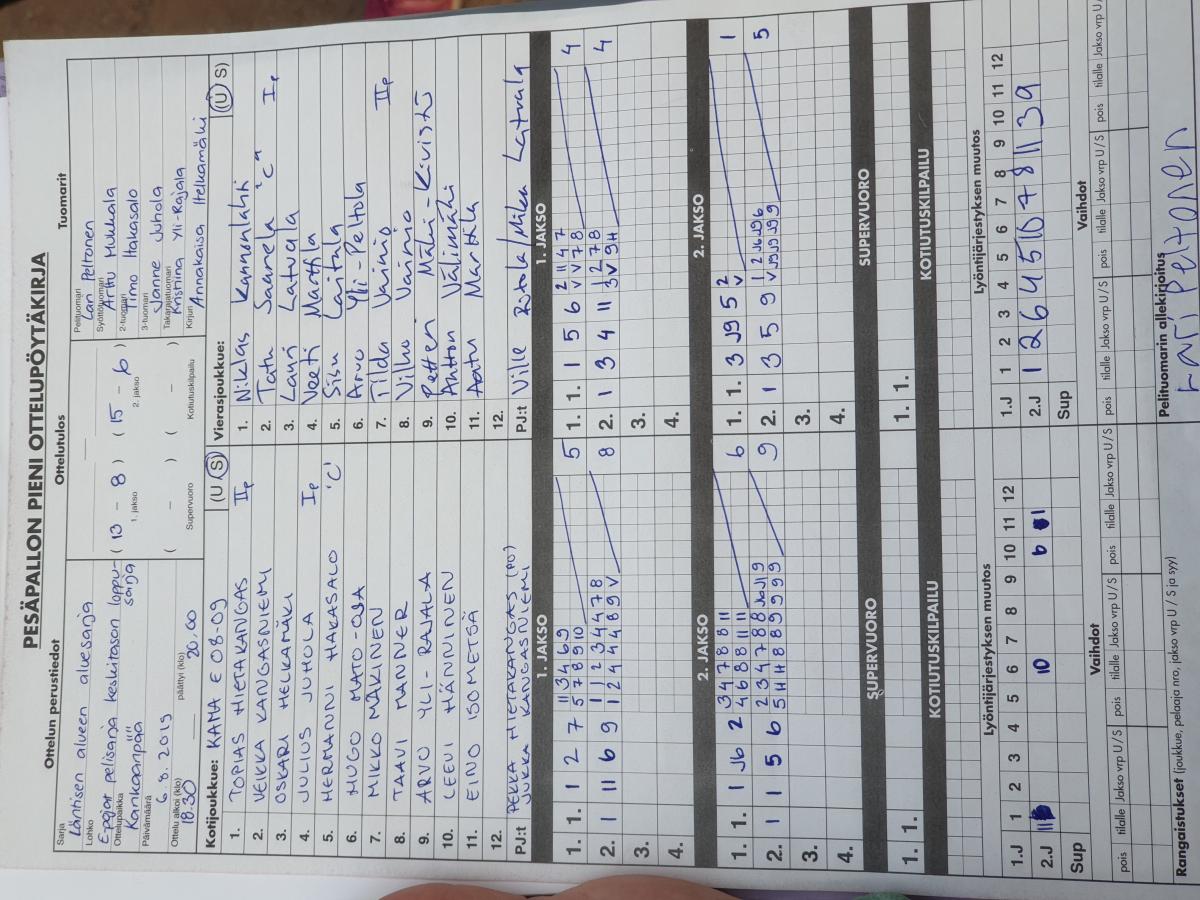 PESÄPALLON PIENI OTTELUPÖYTÄKIRJA
Ottelun perustiedot
Ottelutulos
Tuomarit
Sarja
Läntisen alueen aluesarja
Lohko
E-pojat pelisarja keskitason loppu-
sarja
Ottelupaikka
Kankaanpää
Päivämäärä
6.8.2019
Ottelu alkoi (klo)
18.30
päättyi (klo)
20.00
( 13 – 8 ) ( 15 – 6 )
1. jakso
2. jakso
( – ) ( – )
Supervuoro
Kotiutuskilpailu
Pelituomari
Lari Peltonen
Syöttötuomari
Arttu Mukkala
2-tuomari
Timo Itakasalo
3-tuomari
Janne Juhola
Takarajatuomari
Kristiina Yli-Rajala
Kirjuri
Annakaisa Helkamäki
Kotijoukkue: KAMA E 08-09 (U S)
1. TOPIAS HIETAKANGAS IIp
2. VEIKKA KANGASNIEMI
3. OSKARI HELKAMÄKI
4. JULIUS JUHOLA Ip
5. HERMANNI HAKASALO 'C'
6. HUGO MATO-OJA
7. MIKKO MÄKINEN
8. TAAVI MANNER
9. ARVO YLI-RAJALA
10. LEEVI HÄNNINEN
11. EINO ISOMETSÄ
12.
PJ:t PEKKA HIETAKANGAS (PJ)
JUKKA KANGASNIEMI
Vierasjoukkue: (U S)
1. Niklas Kannenlahti
2. Tatu Saarela "C" Ip
3. Lauri Latvala
4. Veeti Marttila
5. Sisu Laitala
6. Arvo Yli-Peltola
7. Tilda Vainio IIp
8. Vilho Vainio
9. Petteri Mäki-Kivistö
10. Anttoni Välimäki
11. Aatu Marttila
12.
PJ:t Ville Ristola/Mika Latvala
1. JAKSO
1. 1. 1 2 7 11 3 4 6 9 5
5 7 8 9 10
2. 1 11 6 9 1 1 2 3 4 4 7 8 8
1 2 4 4 4 8 9 V
3.
4.
1. JAKSO
1. 1. 1 5 6 2 11 4 7 4
V V 7 8
2. 1 3 4 11 1 2 7 8 4
3 V 9 H
3.
4.
2. JAKSO
1. 1. 1 J6 2 3 4 7 8 8 11 6
4 6 8 8 11 11
2. 1 5 6 2 3 4 7 8 8 J10 J11 9 9
5 H H 8 8 9 9 9 9
3.
4.
2. JAKSO
1. 1. 3 J9 5 2 1
V
2. 1 3 5 9 1 2 J6 J9 6 5
V J9 J9 J9 9
3.
4.
SUPERVUORO
1. 1.
SUPERVUORO
1. 1.
KOTIUTUSKILPAILU
KOTIUTUSKILPAILU
Lyöntijärjestyksen muutos
1 2 3 4 5 6 7 8 9 10 11 12
1.J
2.J 10 6 1
Sup
Lyöntijärjestyksen muutos
1 2 3 4 5 6 7 8 9 10 11 12
1.J
2.J 1 2 6 4 5 10 7 8 11 3 9
Sup
Vaihdot
pois tilalle Jakso vrp U/S pois tilalle Jakso vrp U/S pois tilalle Jakso vrp U/S
Vaihdot
pois tilalle Jakso vrp U/S pois tilalle Jakso vrp U/S pois tilalle Jakso vrp U/
Rangaistukset (joukkue, pelaaja nro, jakso vrp U / S ja syy)
Pelituomarin allekirjoitus
Lari Peltonen